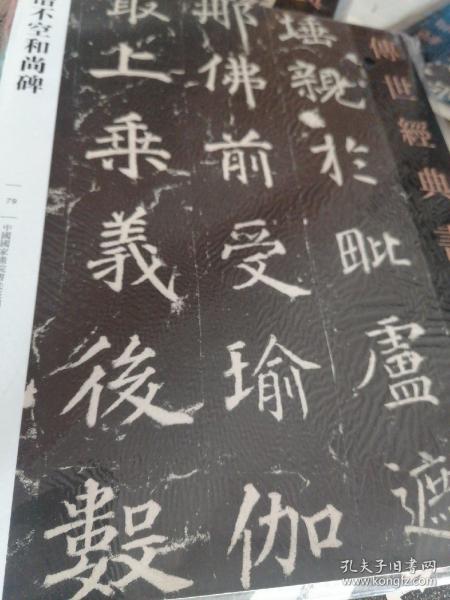 傳世經典書
埵親於毗盧遮
那佛前受瑜伽
最上乘義後數
不空和尚碑
79
孔夫子旧书网
www.kongfz.com